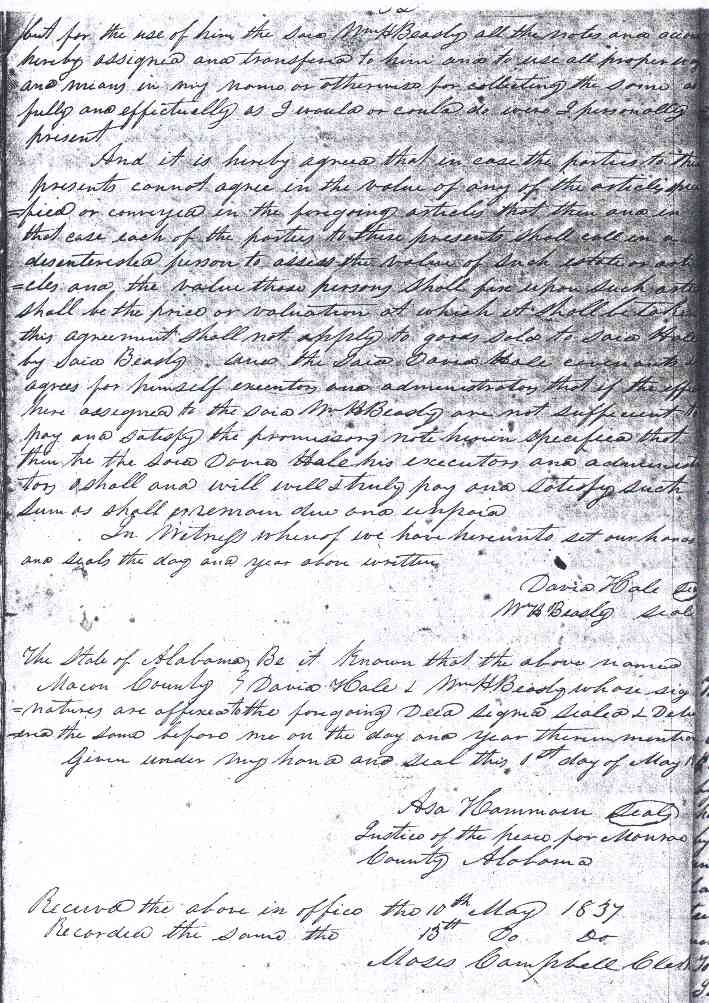 but for the use of him the said Wm H Beasly all the notes and accou
hereby assigned and transferd to him and to use all proper way
and means in my name or otherwise for collecting the same as
fully and effectually as I would or could do were I personally
present
And it is hereby agreed that in case the parties to the
presents cannot agree in the value of any of the articles
=fied or conveyed in the foregoing articles that then and in
that case each of the parties to these presents shall call in a
desenterested person to assess the value of such estate or arti
=cles and the value these persons shall fix upon such arti
shall be the price or valuation at which it shall be taken
this agreement shall not apply to goods sold to said Hale
by said Beasly and the said David Hale covenants
agrees for himself executors and administrators that if the effe
here assigned to the said Wm H Beasly are not suffecient to
pay and satisfy the promissory note herein specified that
then he the said David Hale his executors and administra
tors shall and will will & truly pay and satisfy such
sum as shall remain due and unpaid
In Witness whereof we have hereunto set our hands
and seals the day and year above written
David Hale
Wm H Beasly seal
The State of Alabama } Be it Known that the above named
Macon County } David Hale & Wm H Beasly whose sig
=natures are affixed to the foregoing Deed signed sealed & Deliv
=ered the same before me on the day and year therein mention
Given under my hand and seal this 1st day of May
Asa Hammam seal
Justice of the peace for Monroe
County Alabama
Received the above in office the 10th May 1837
Recorded the same the 15th Do Do
Moses Campbell Clerk